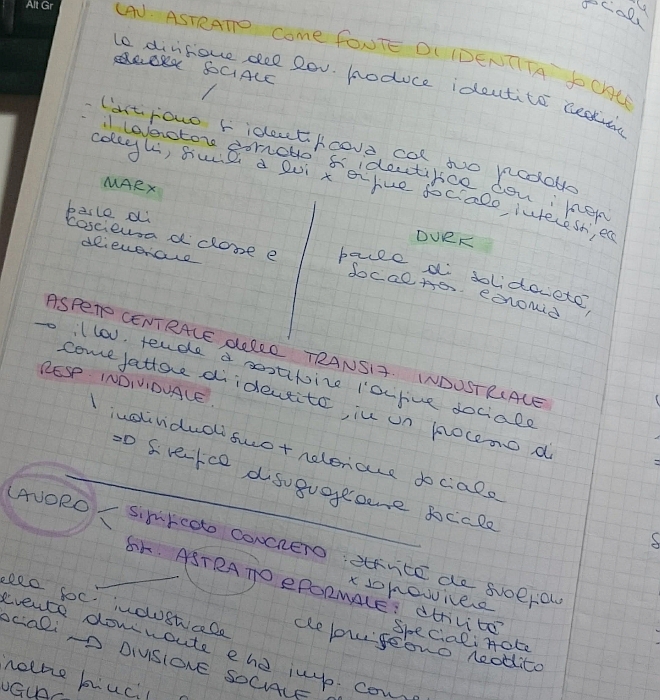 Alt Gr
sociale
LAV. ASTRATTO come FONTE DI IDENTITÀ SOCIALE
la divisione del lav. produce identità
SOCIALE
- l'artigiano si identificava col suo prodotto
- il lavoratore astratto si identifica con i propri
colleghi, simili a lui x origine sociale, interessi, ecc
MARX
parla di
coscienza di classe e
alienazione
DURK
parla di solidarietà,
social
ASPETTO CENTRALE della TRANSIZ. INDUSTRIALE
→ il lav. tende a sostituire l'origine sociale
come fattore di identità, in un processo di
RESP. INDIVIDUALE.
individualismo + relazione sociale
=D si verifica disuguaglianza sociale
LAVORO
Significato CONCRETO : attività da svolgere
x sopravvivere
Sig. ASTRATTO e FORMALE: attività
specializzate
che producono reddito
nella soc. industriale
diventa dominante e ha imp. conse
sociali → DIVISIONE SOCIALE
inoltre princi
UGUAG